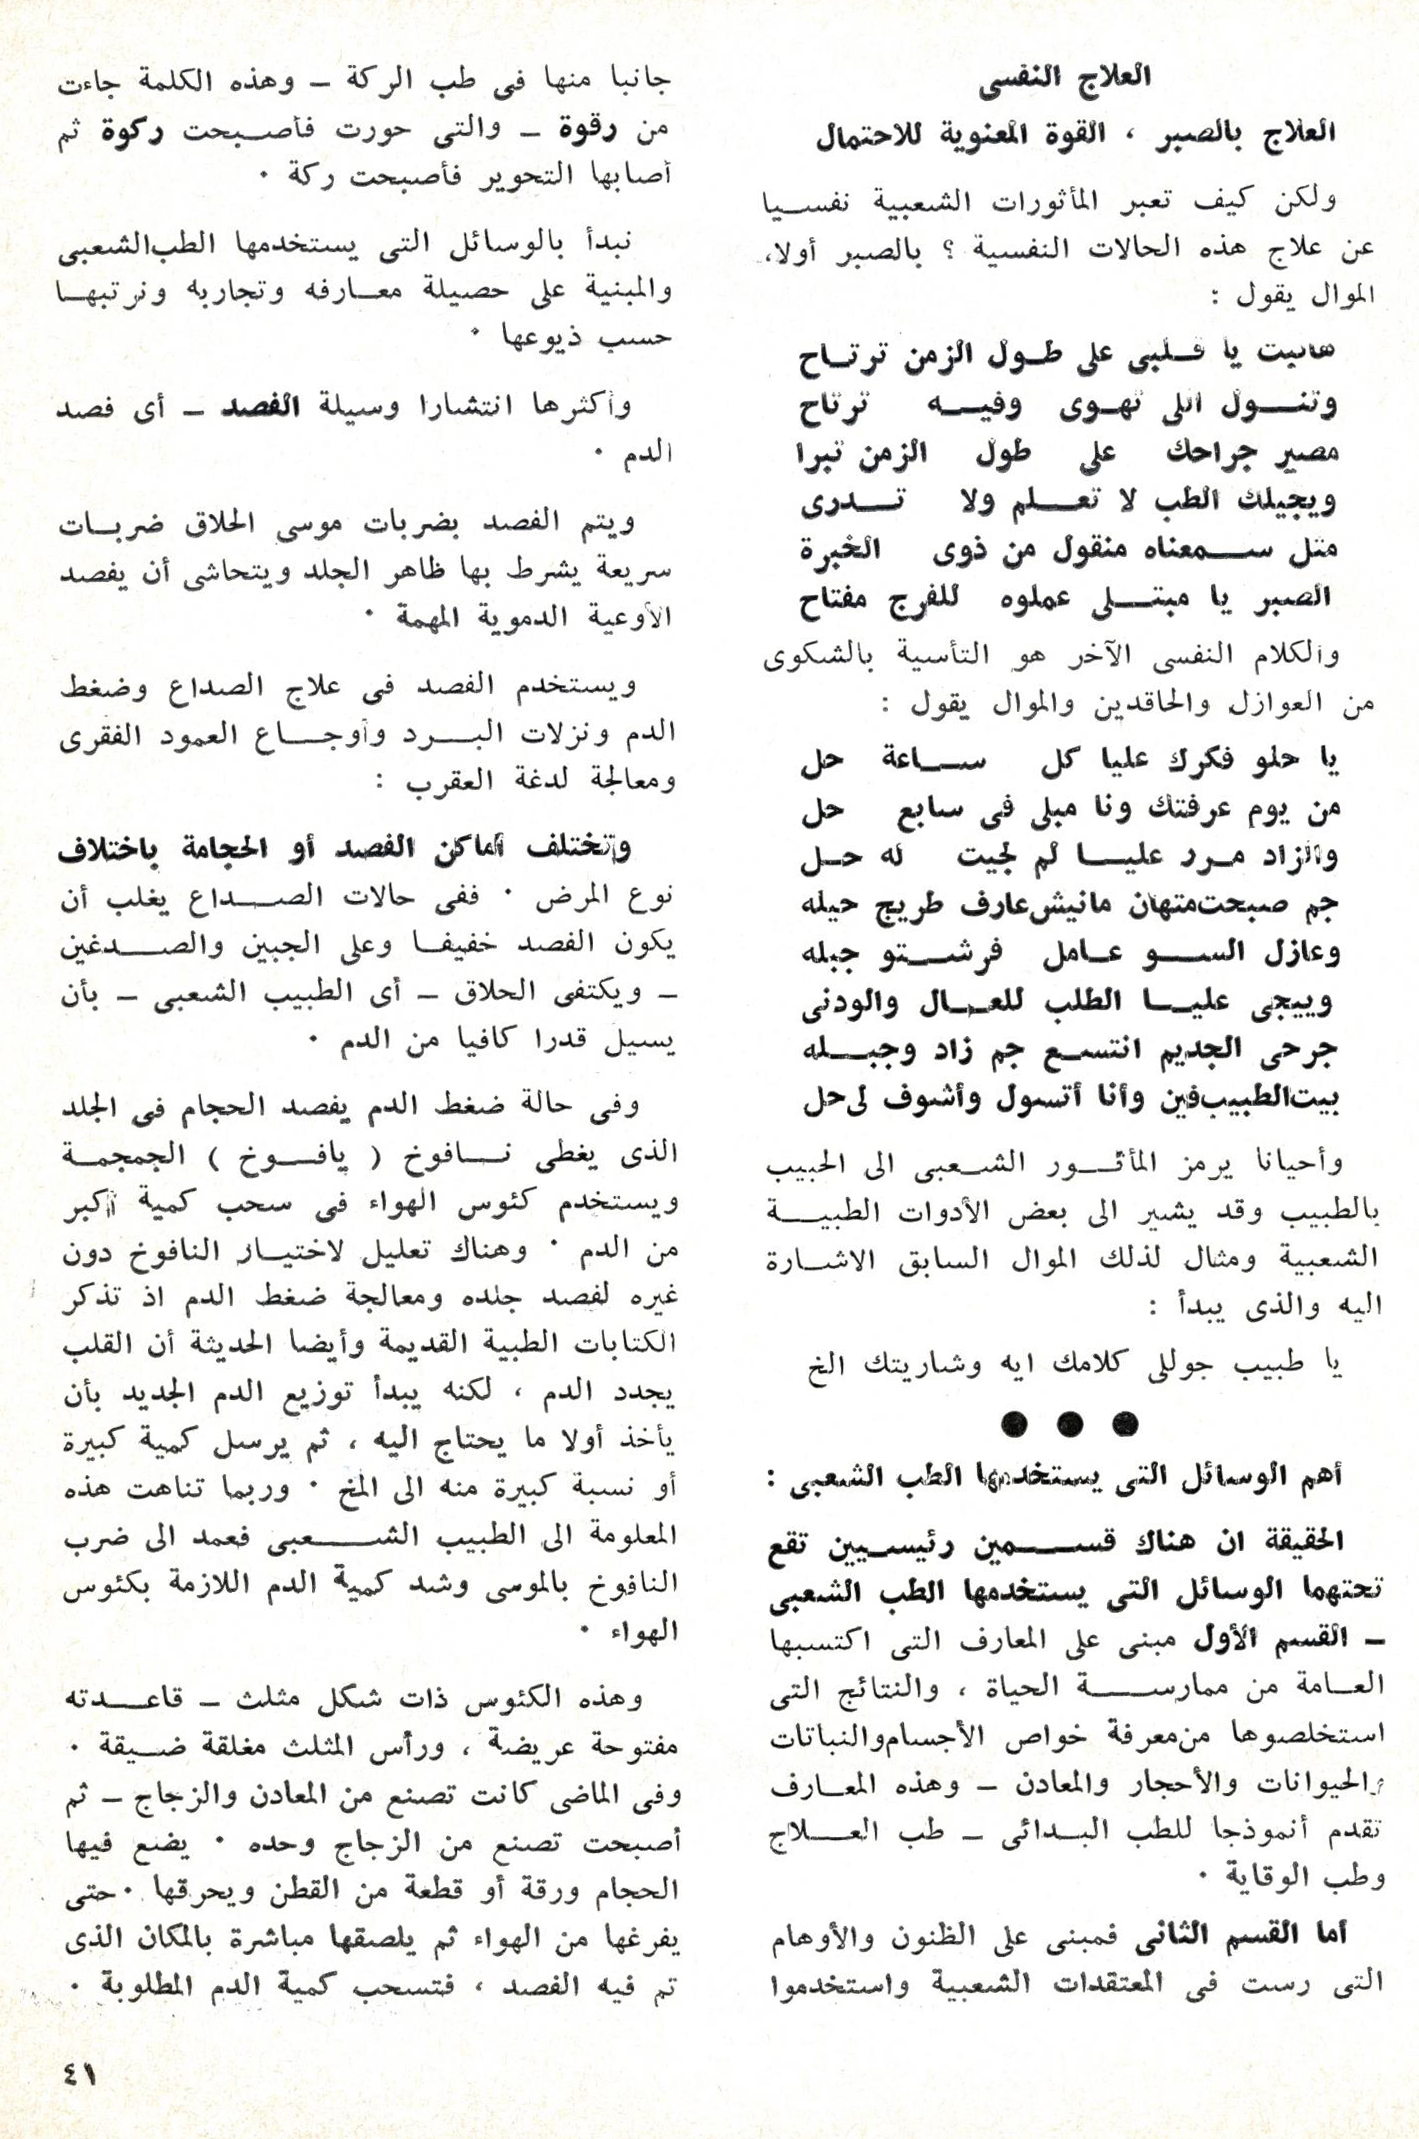 العلاج النفسى
العلاج بالصبر ، القوة المعنوية للاحتمال
ولكن كيف تعبر المأثورات الشعبية نفسـيا
عن علاج هذه الحالات النفسية ؟ بالصبر أولا،
الموال يقول :
يا قـلبى على طـول الزمن ترتـاح
وتنـــول اللى تهـوى وفيـــه ترتاح
مصير جراحك على طول الزمن تبرا
ويجيلك الطب لا تعـــلم ولا تـــدرى
مثل ســمعناه منقول من ذوى الخبرة
الصبر يا مبتـــلى عملوه للفرج مفتاح
والكلام النفسى الآخر هو التأسية بالشكوى
من العوازل والحاقدين والموال يقول :
يا حلو فكرك عليا كل ســـاعة حل
من يوم عرفتك ونا مبلى فى سابع حل
والزاد مـرر عليـــا لم لجيت له حـل
جم صبحت متهان مانيش عارف طريج حيله
وعازل الســـو عـامل فرشـــتو جبله
وييجى عليـــا الطلب للعـــال والودنى
جرحى الجديم انتســع جم زاد وجبـــله
بيت الطبيب فين وأنا أتسول وأشوف لى حل
وأحيانا يرمز المأثـــور الشـعبى الى الحبيب
بالطبيب وقد يشير الى بعض الأدوات الطبيـــة
الشعبية ومثال لذلك الموال السابق الاشـارة
اليه والذى يبدأ :
يا طبيب جوللى كلامك ايه وشاريتك الخ
● ● ●
أهم الوسائل التى يستخدمها الطب الشعبى :
الحقيقة ان هناك قســـمين رئيسـيين تقع
تحتهما الوسائل التى يستخدمها الطب الشعبى
ـ القسم الأول مبنى على المعارف التى اكتسبها
العـامة من ممارســـة الحياة ، والنتائج التى
استخلصوها من معرفة خواص الأجسام والنباتات
والحيوانات والأحجار والمعادن ـ وهذه المعـارف
تقدم أنموذجا للطب البـدائى ـ طب العـــلاج
وطب الوقاية ٠
أما القسم الثانى فمبنى على الظنون والأوهام
التى رست فى المعتقدات الشعبية واستخدموا
جانبا منها فى طب الركة ـ وهذه الكلمة جاءت
من رقوة ـ والتى حورت فأصـبحت ركوة ثم
أصابها التحوير فأصبحت ركة ٠
نبدأ بالوسائل التى يستخدمها الطب الشعبى
والمبنية على حصيلة معـارفه وتجاربه ونرتبهـا
حسب ذيوعها ٠
وأكثرها انتشارا وسيلة الفصد ـ أى فصد
الدم ٠
ويتم الفصد بضربات موسى الحلاق ضربـات
سريعة يشرط بها ظاهر الجلد ويتحاشى أن يفصد
الأوعية الدموية المهمة ٠
ويستخدم الفصد فى علاج الصداع وضغط
الدم ونزلات البـــرد وأوجـــاع العمود الفقرى
ومعالجة لدغة العقرب :
وتختلف أماكن الفصد أو الحجامة باختلاف
نوع المرض ٠ ففى حالات الصـــداع يغلب أن
يكون الفصد خفيفـا وعلى الجبين والصـــدغين
ـ ويكتفى الحلاق ـ أى الطبيب الشعبى ـ بأن
يسيل قدرا كافيا من الدم ٠
وفى حالة ضغط الدم يفصد الحجام فى الجلد
الذى يغطى نـــافوخ ( يافـــوخ ) الجمجمـة
ويستخدم كئوس الهواء فى سحب كمية أكبر
من الدم ٠ وهناك تعليل لاختيـار النافوخ دون
غيره لفصد جلده ومعالجة ضغط الدم اذ تذكر
الكتابات الطبية القديمة وأيضا الحديثة أن القلب
يجدد الدم ، لكنه يبدأ توزيع الدم الجديد بأن
يأخذ أولا ما يحتاج اليه ، ثم يرسل كمية كبيرة
أو نسبة كبيرة منه الى المخ ٠ وربما تناهت هذه
المعلومة الى الطبيب الشـــعبى فعمد الى ضرب
النافوخ بالموسى وشد كمية الدم اللازمة بكئوس
الهواء ٠
وهذه الكئوس ذات شكل مثلث ـ قاعـــدته
مفتوحة عريضة ، ورأس المثلث مغلقة ضـيقة ٠
وفى الماضى كانت تصنع من المعادن والزجاج ـ ثم
أصبحت تصنع من الزجاج وحده ٠ يضع فيها
الحجام ورقة أو قطعة من القطن ويحرقها ٠ حتى
يفرغها من الهواء ثم يلصقها مباشرة بالمكان الذى
تم فيه الفصد ، فتسحب كمية الدم المطلوبة ٠
٤١